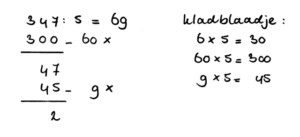 347 : 5 = 69
300 - 60 x
47
45 - 9 x
2
kladblaadje :
6 x 5 = 30
60 x 5 = 300
9 x 5 = 45